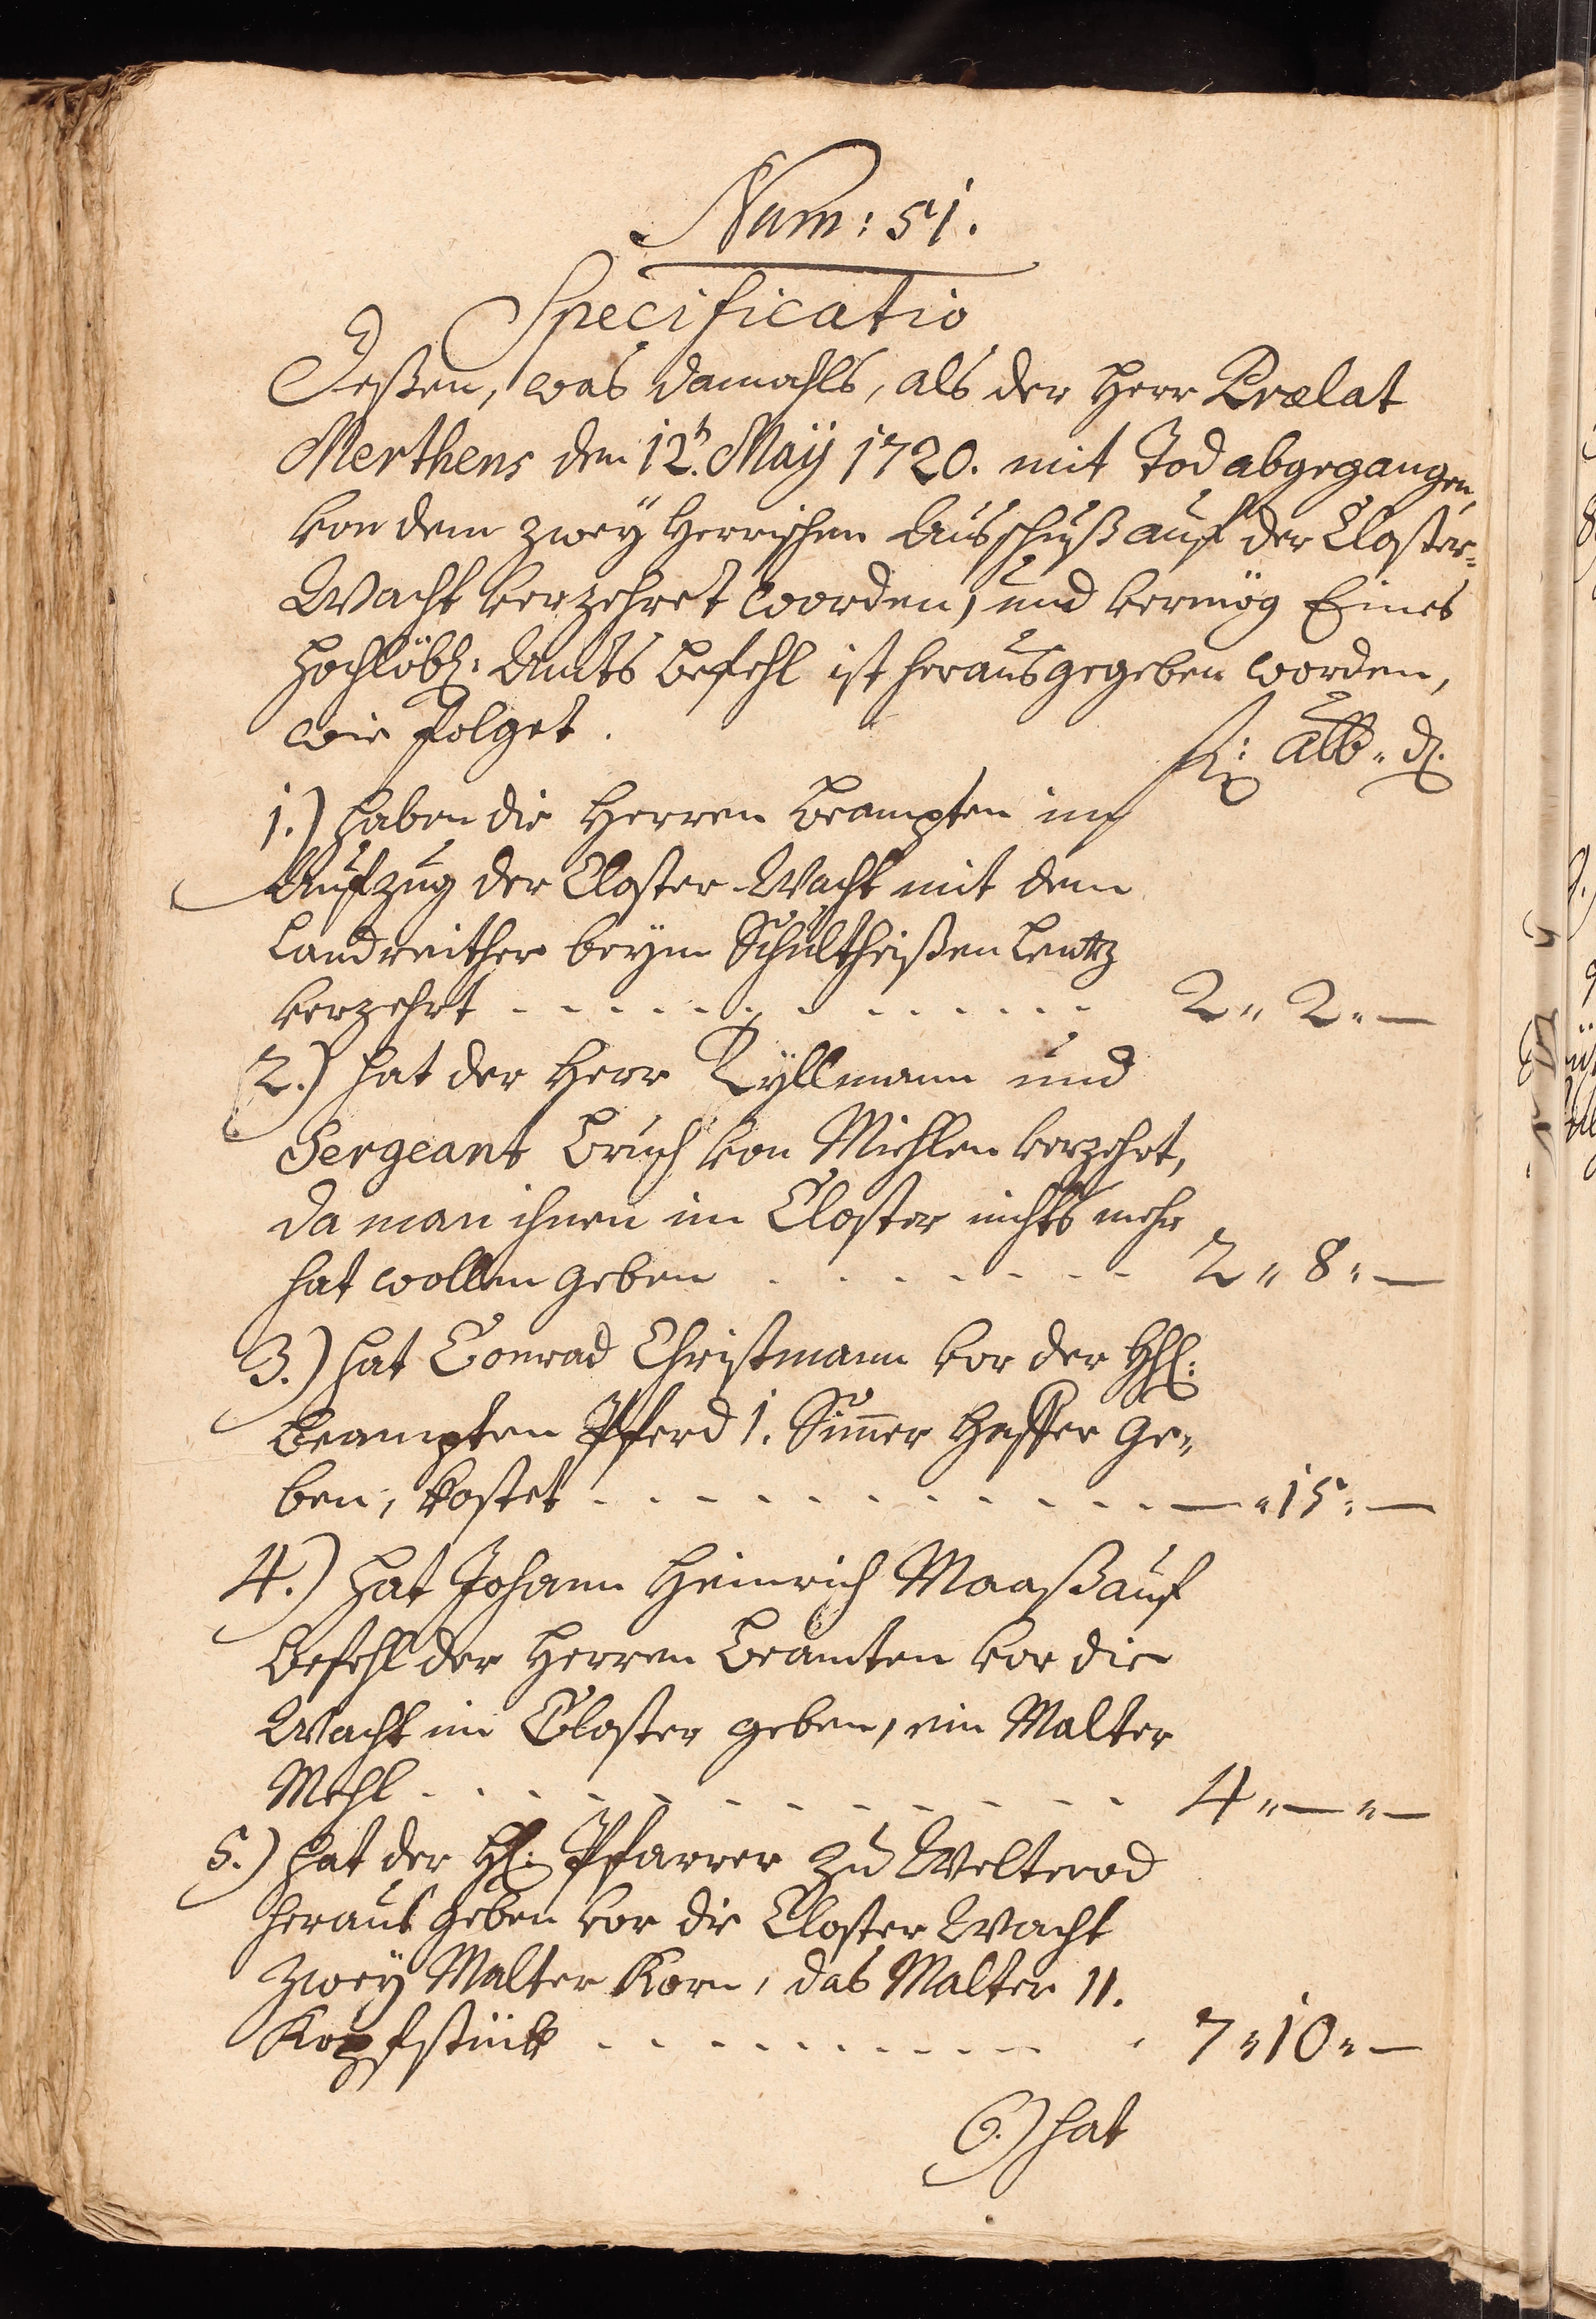 Num: 51.
Specificatio
Deßen, was damahls, als der Herr Prælat
Merthens den 12t. Maÿ 1720. mit Tod abgegangen,
von dem zweÿ Herrischen Ausschuß auf der Closter-
Wacht verzehret worden, und vermög Eines
Hochlöbl: Ambts Befehl ist herausgegeben worden,
wie folget.
fl: alb. d.
1.) haben die Herren Beampten im
Aufzug der Closter-Wacht mit dem
Landreither beÿm Schultheißen Lentz
verzehrt - - - - - - - - - - - - 2 " 2 " —
2.) hat der Herr Ryllmann und
Sergeant Bruch von Miehlen verzehrt,
da man ihnen im Closter nichts mehr
hat wollen geben - - - - - - - - 2 " 8 " —
3.) hat Conrad Christmann vor der HHl:
Beampten Pferd 1. Simer Haffer ge-
ben, kostet - - - - - - - - - - - — " 15 " —
4.) hat Johann Heinrich Maaß auf
Befehl der Herren Beamten vor die
Wacht im Closter geben, ein Malter
Mehl - - - - - - - - - - - - - 4 " — " —
5.) hat der Hl: Pfarrer zu Welterod
heraus geben vor die Closter Wacht
Zweÿ Malter Korn, das Malter 11.
Kopfstück - - - - - - - - - - - 7 " 10 " —
6.) hat